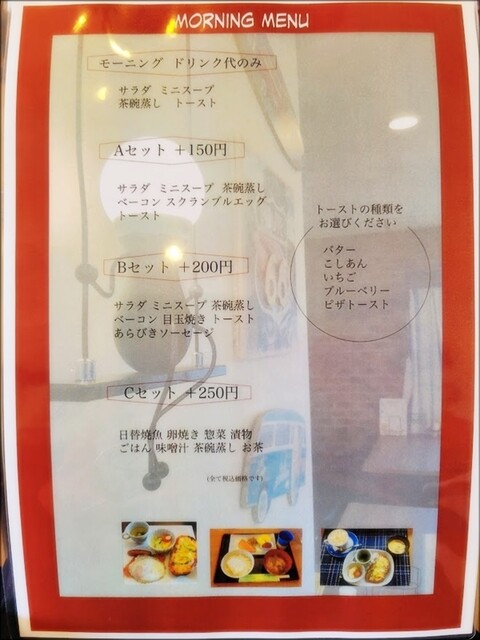 MORNING MENU
モーニング ドリンク代のみ
サラダ ミニスープ
茶碗蒸し トースト
Aセット +150円
サラダ ミニスープ 茶碗蒸し
ベーコン スクランブルエッグ
トースト
Bセット +200円
サラダ ミニスープ 茶碗蒸し
ベーコン 目玉焼き トースト
あらびきソーセージ
Cセット +250円
日替焼魚 卵焼き 惣菜 漬物
ごはん 味噌汁 茶碗蒸し お茶
(全て税込価格です)
トーストの種類を
お選びください
バター
こしあん
いちご
ブルーベリー
ピザトースト